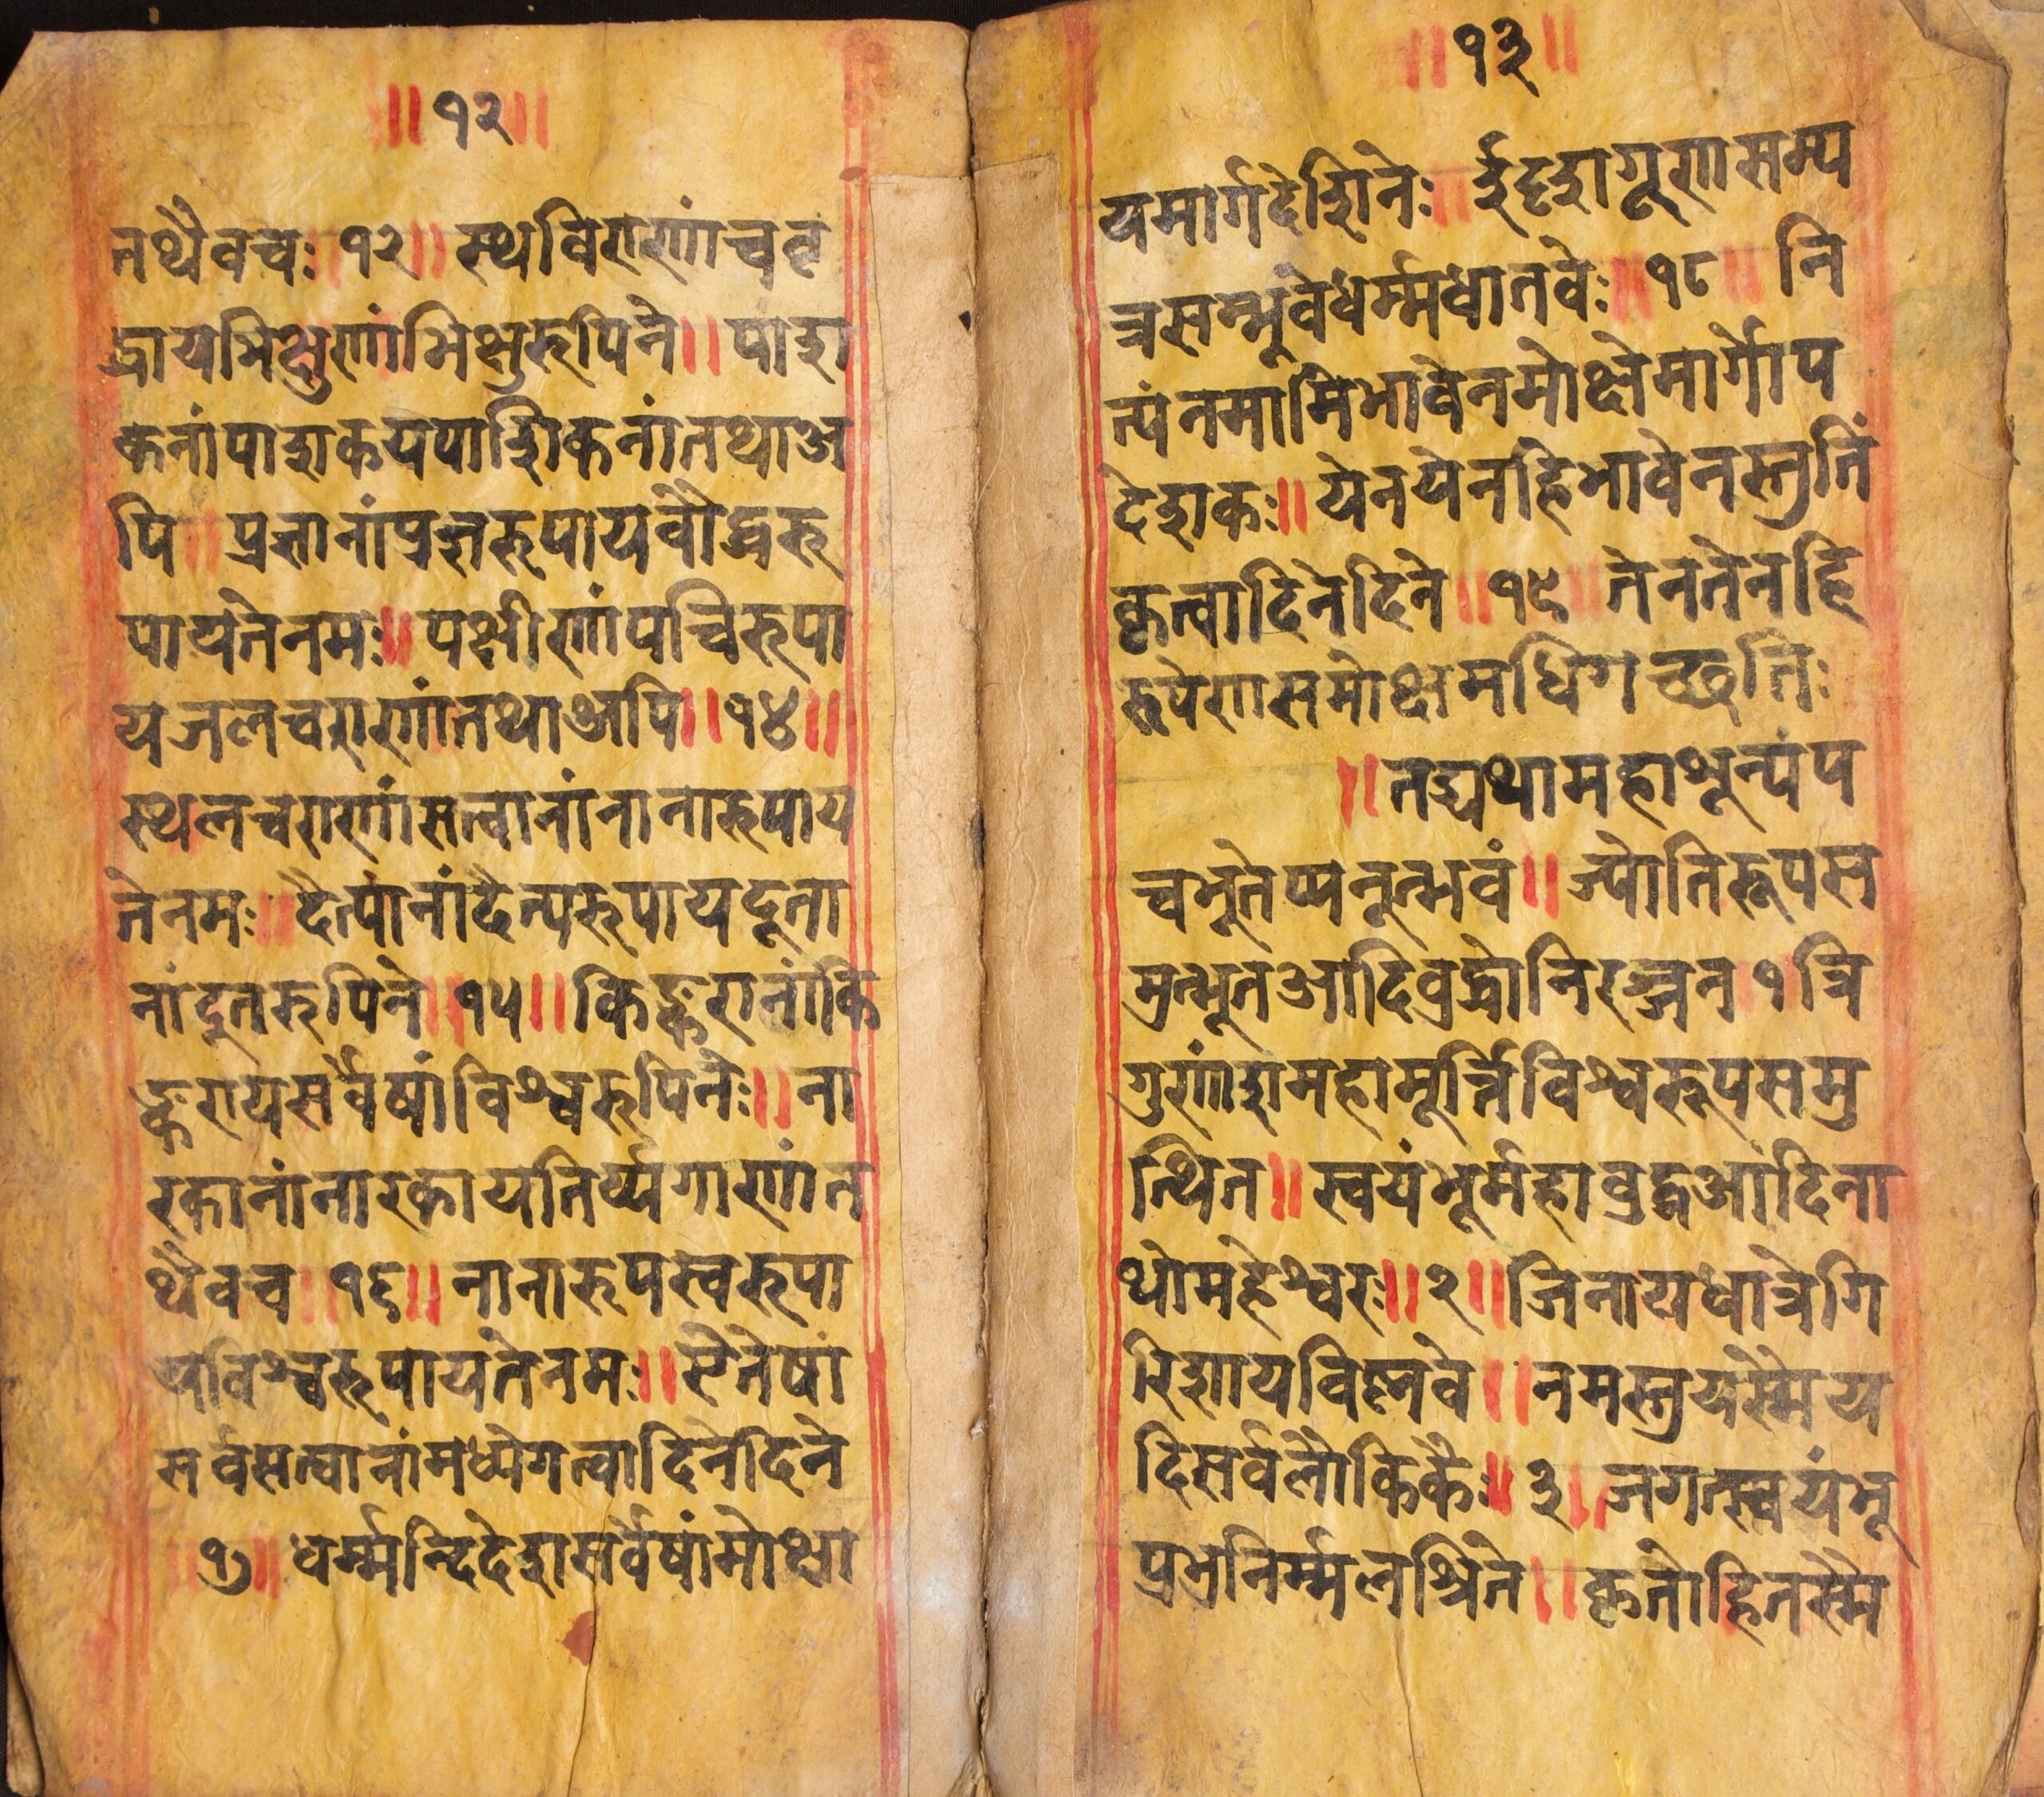 ॥१२॥
तथैवचः॥१२॥स्थविराणांचवृ
द्धायभिक्षुणांभिक्षुरूपिने॥पाशु
कनांपाशुकयपाशिकनांतथाअ
पि॥प्रज्ञानांप्रज्ञरूपायवौद्धरू
पायतेनमः॥पक्षीणांपच्चिरूपा
यजलचराणांतथाअपि॥१४॥
स्थलचराणांसत्वानांनानारूपाय
तेनमः॥दैत्यानांदैत्यरूपायदूता
नांदूतरूपिने॥१५॥किङ्करानांकि
ङ्करायसर्वेषांविश्वरूपिनेः॥ना
रकानांनारकायतिर्य्यगाणांत
थैवच॥१६॥नानारूपस्वरूपा
यविश्वरूपायतेनमः॥एतेषां
सर्वसत्वानांमध्येगत्वादिनेदिने
१७॥धर्म्मन्दिदेशसर्वेषांमोक्षा
॥१३॥
यमार्गदेशिनेः॥ईदृशगूणसम्प
न्नसम्भूवेधर्म्मधातवेः॥१८॥नि
त्यंनमामिभावेनमोक्षेमार्गोप
देशकः॥येनयेनहिभावेनस्तुतिं
कृत्वादिनेदिने॥१९॥तेनतेनहि
रूपेणसमोक्षमधिगच्छतिः
॥तद्यथामहाभून्यंप
च्चभूतेप्यनूत्भवं॥ज्योतिरूपस
मुत्भूतआदिवुद्धोनिरञ्जन॥१॥त्रि
गुणांशमहामूर्त्तिविश्वरूपसमु
त्थित॥स्वयंभूर्महावुद्धआदिना
थोमहेश्वरः॥२॥जिनायधात्रेगि
रिशायविष्नवे॥नमस्तुयस्मैय
दिसर्वलौकिकैः॥३॥जगत्स्वयंभू
प्रभनिर्म्मलश्रिते॥कृतोहितस्मै